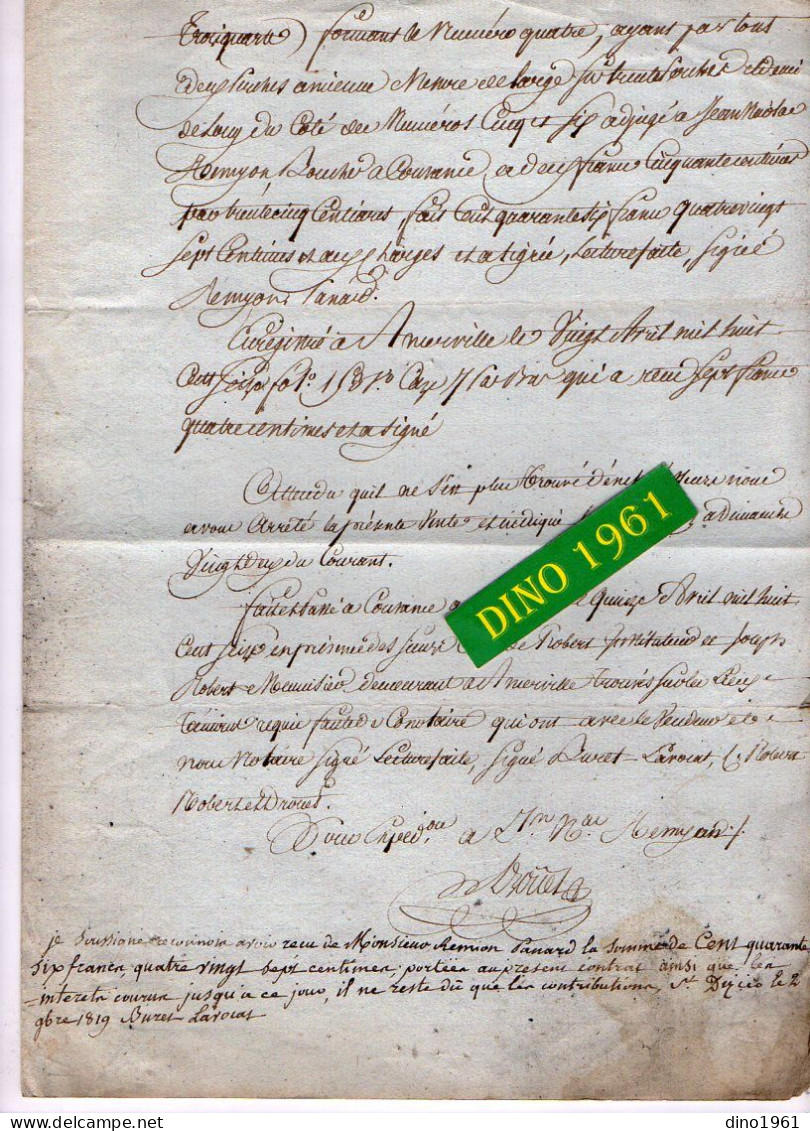 Troiquarts) formant le Numéro quatre, ayant par tous
deux Perches ancienne Mesure de large sur trente Perches et demi
de Long du Coté des Numéros Cinq et Six adjugé a Jean Nicolas
Remyon a Courance, a deux franc Cinquante centimes
par trente cinq Centiares, fait Cent quarante Six franc quatre vingt
Sept Centimes et aux Charges et a signé, Lecture faite, signé
Remyon, Panard.
Enregistré à Amerville le Vingt Avril mil huit
Cent Seize fo. 153 Case 7 qui a reçu Sept franc
quatre centimes et a signé
Attendu quil ne S'en plus Trouvé nous
avons Arrêté la présente Vente et indiqué a dimanche
Vingt Deux du Courant.
fait et Passé à Courance quinze Avril mil huit
Cent Seize en présence des Sieurs Robert Instituteur et Joseph
Robert Menuisier demeurant a Amerville Trouvés sur les Lieux
Témoins requis faute de Conotaire qui ont avec le Vendeur et
nous Notaire signé Lecture faite, signé Buret Lavocat, C. Robert
Robert et Drouet.
Pour Exped.on a Jn Nas Remyon ./.
Drouet
je Soussigné reconnois avoir recu de Monsieur Remion Panard la somme de Cent quarante
Six francs quatre vingt Sept centimes portées au présent contrat ainsi que les
interets courus jusqu'a ce jour, il ne reste dû que les contributions, St Dizier le 2
9bre 1819 Buret Lavocat
DINO 1961
dino1961